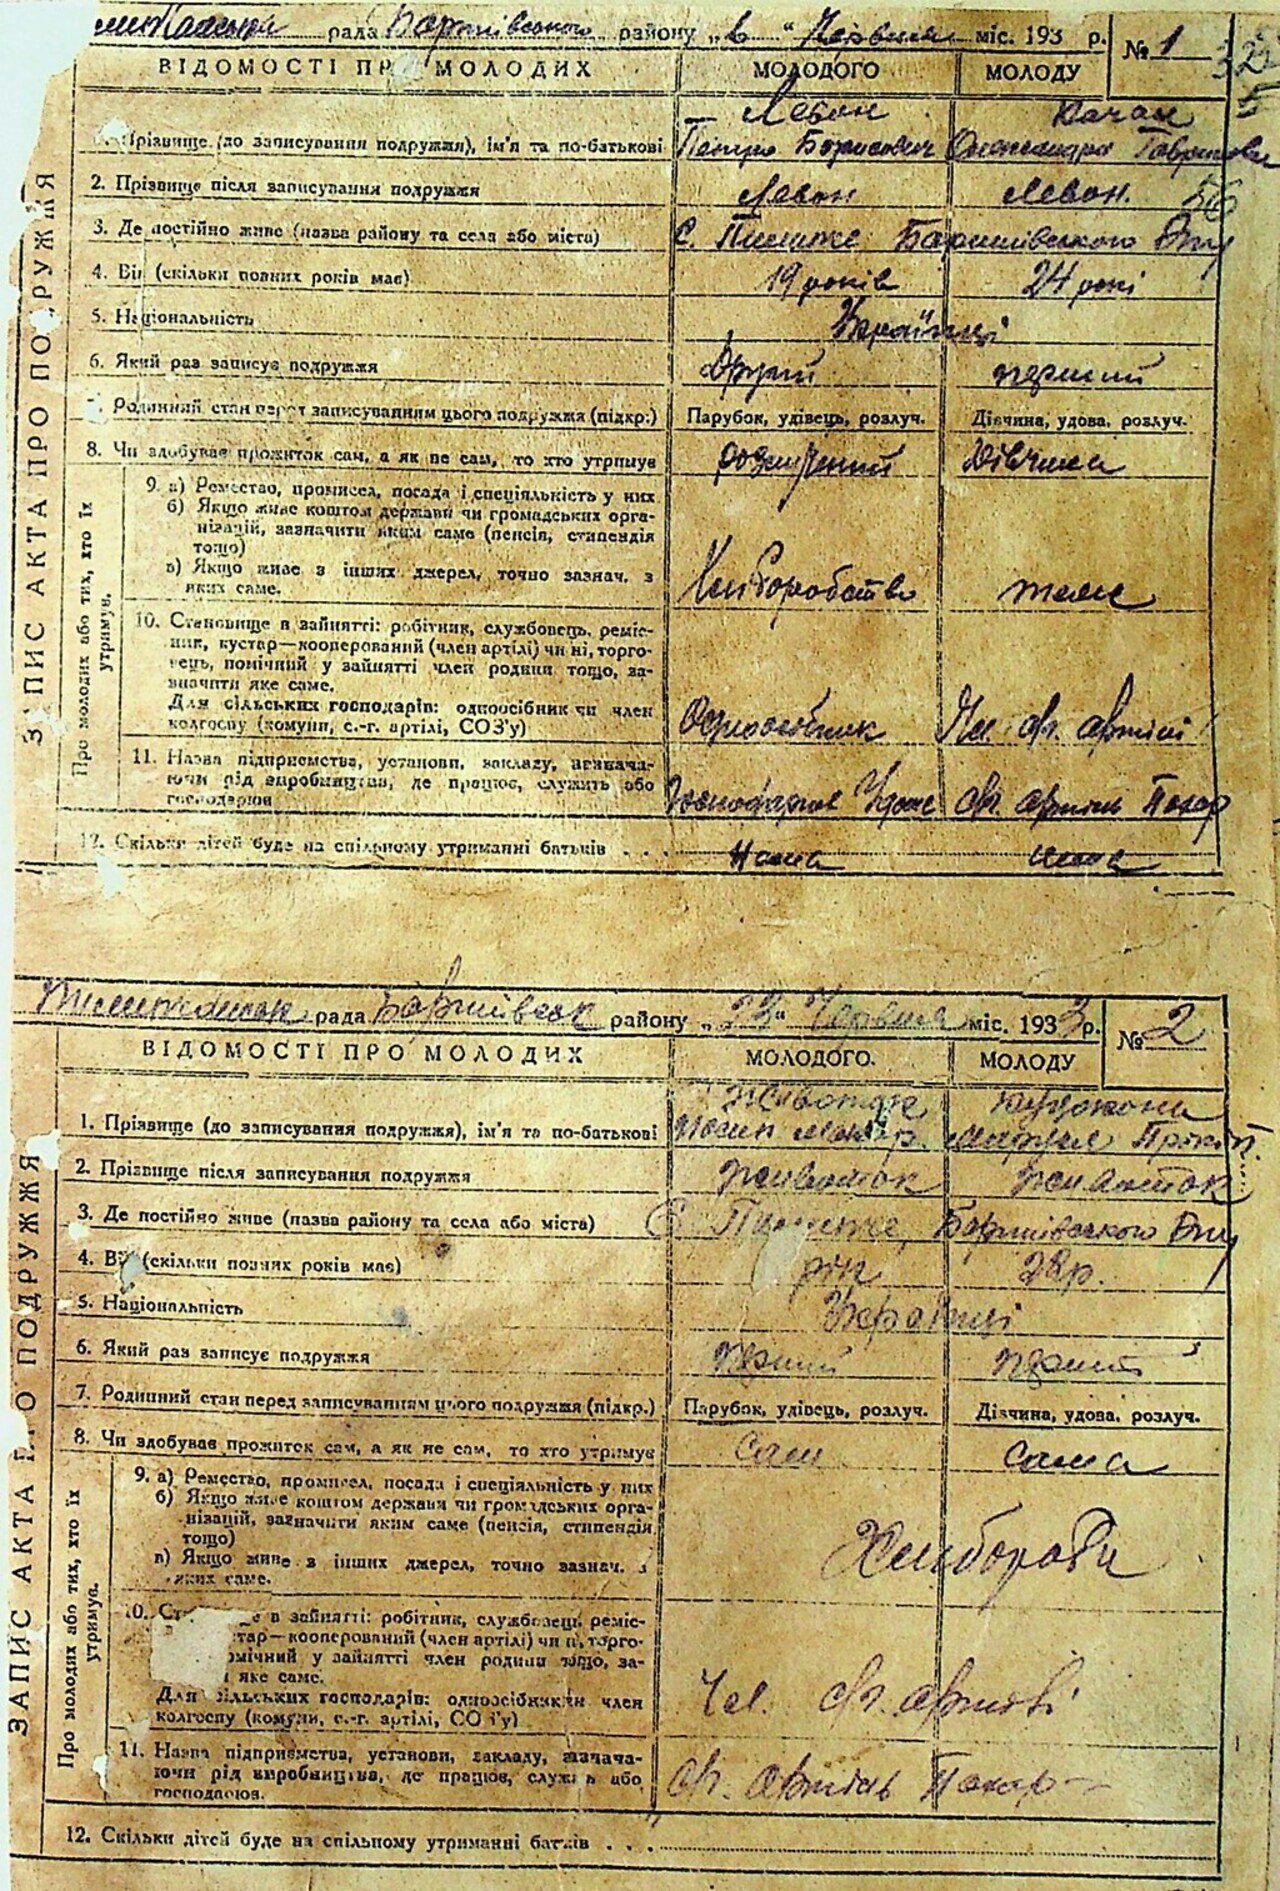 рада Баришівського району „6" Червня міс. 193 р.
№ 1
ВІДОМОСТІ ПРО МОЛОДИХ
МОЛОДОГО
МОЛОДУ
ЗАПИС АКТА ПРО ПОДРУЖЖЯ
Левон
Прізвище (до записування подружжя), ім'я та по-батькові
Петро Борисович
Олександра
2. Прізвище після записування подружжя
Левон
Левон.
56
3. Де постійно живе (назва району та села або міста)
с. Баришівського р-ну
4. Вік (скільки повних років має)
19 років
24 роки
5. Національність
Українці
6. Який раз записує подружжя
другий
перший
7. Родинний стан перед записуванням цього подружжя (підкр.)
Парубок, удівець, розлуч.
Дівчина, удова, розлуч.
8. Чи здобував прожиток сам, а як не сам, то хто утримує
розлучений
дівчина
Про молодих або тих, хто їх утримув.
9. а) Ремество, промисел, посада і спеціяльність у них
б) Якщо живе коштом держави чи громадських орга-
нізацій, зазначити яким саме (пенсія, стипендія
тощо)
в) Якщо живе з інших джерел, точно зазнач. з
яких саме.
Хліборобство
теж
10. Становище в зайнятті: робітник, службовець, реміс-
ник, кустар—кооперований (член артілі) чи ні, торго-
вець, помічний у зайнятті член родини тощо, за-
значити яке саме.
Для сільських господарів: одноосібник чи член
колгоспу (комуни, с.-г. артілі, СОЗ'у)
Одноосібник
Чл. с/г. артілі
11. Назва підприємства, установи, закладу, визнача-
ючи рід виробництва, де працює, служить або
господарює
с/г. артіль
12. Скільки дітей буде на спільному утриманні батьків . . .
нема
нема
рада Баришівськ району „23" Червня міс. 1933 р.
№ 2
ВІДОМОСТІ ПРО МОЛОДИХ
МОЛОДОГО.
МОЛОДУ
ЗАПИС АКТА ПРО ПОДРУЖЖЯ
Животок
1. Прізвище (до записування подружжя), ім'я та по-батькові
2. Прізвище після записування подружжя
Животок
Животок
3. Де постійно живе (назва району та села або міста)
с. Баришівського р-ну
4. Вік (скільки повних років має)
рік
28 р.
5. Національність
Українці
6. Який раз записує подружжя
перший
перший
7. Родинний стан перед записуванням цього подружжя (підкр.)
Парубок, удівець, розлуч.
Дівчина, удова, розлуч.
8. Чи здобував прожиток сам, а як не сам, то хто утримує
сам
сама
Про молодих або тих, хто їх утримув.
9. а) Ремество, промисел, посада і спеціяльність у них
б) Якщо живе коштом держави чи громадських орга-
нізацій, зазначити яким саме (пенсія, стипендія
тощо)
в) Якщо живе з інших джерел, точно зазнач. з
яких саме.
Хлібороби
10. в зайнятті: робітник, службовець, реміс-
кустар—кооперований (член артілі) чи ні, торго-
помічний у зайнятті член родини тощо, за-
яке саме.
Для сільських господарів: одноосібник чи член
колгоспу (комуни, с.-г. артілі, СОЗ'у)
Чл. с/г. артілі
11. Назва підприємства, установи, закладу, зазнача-
ючи рід виробництва, де працює, служить або
господарює.
с/г. артіль
12. Скільки дітей буде на спільному утриманні батьків . . .